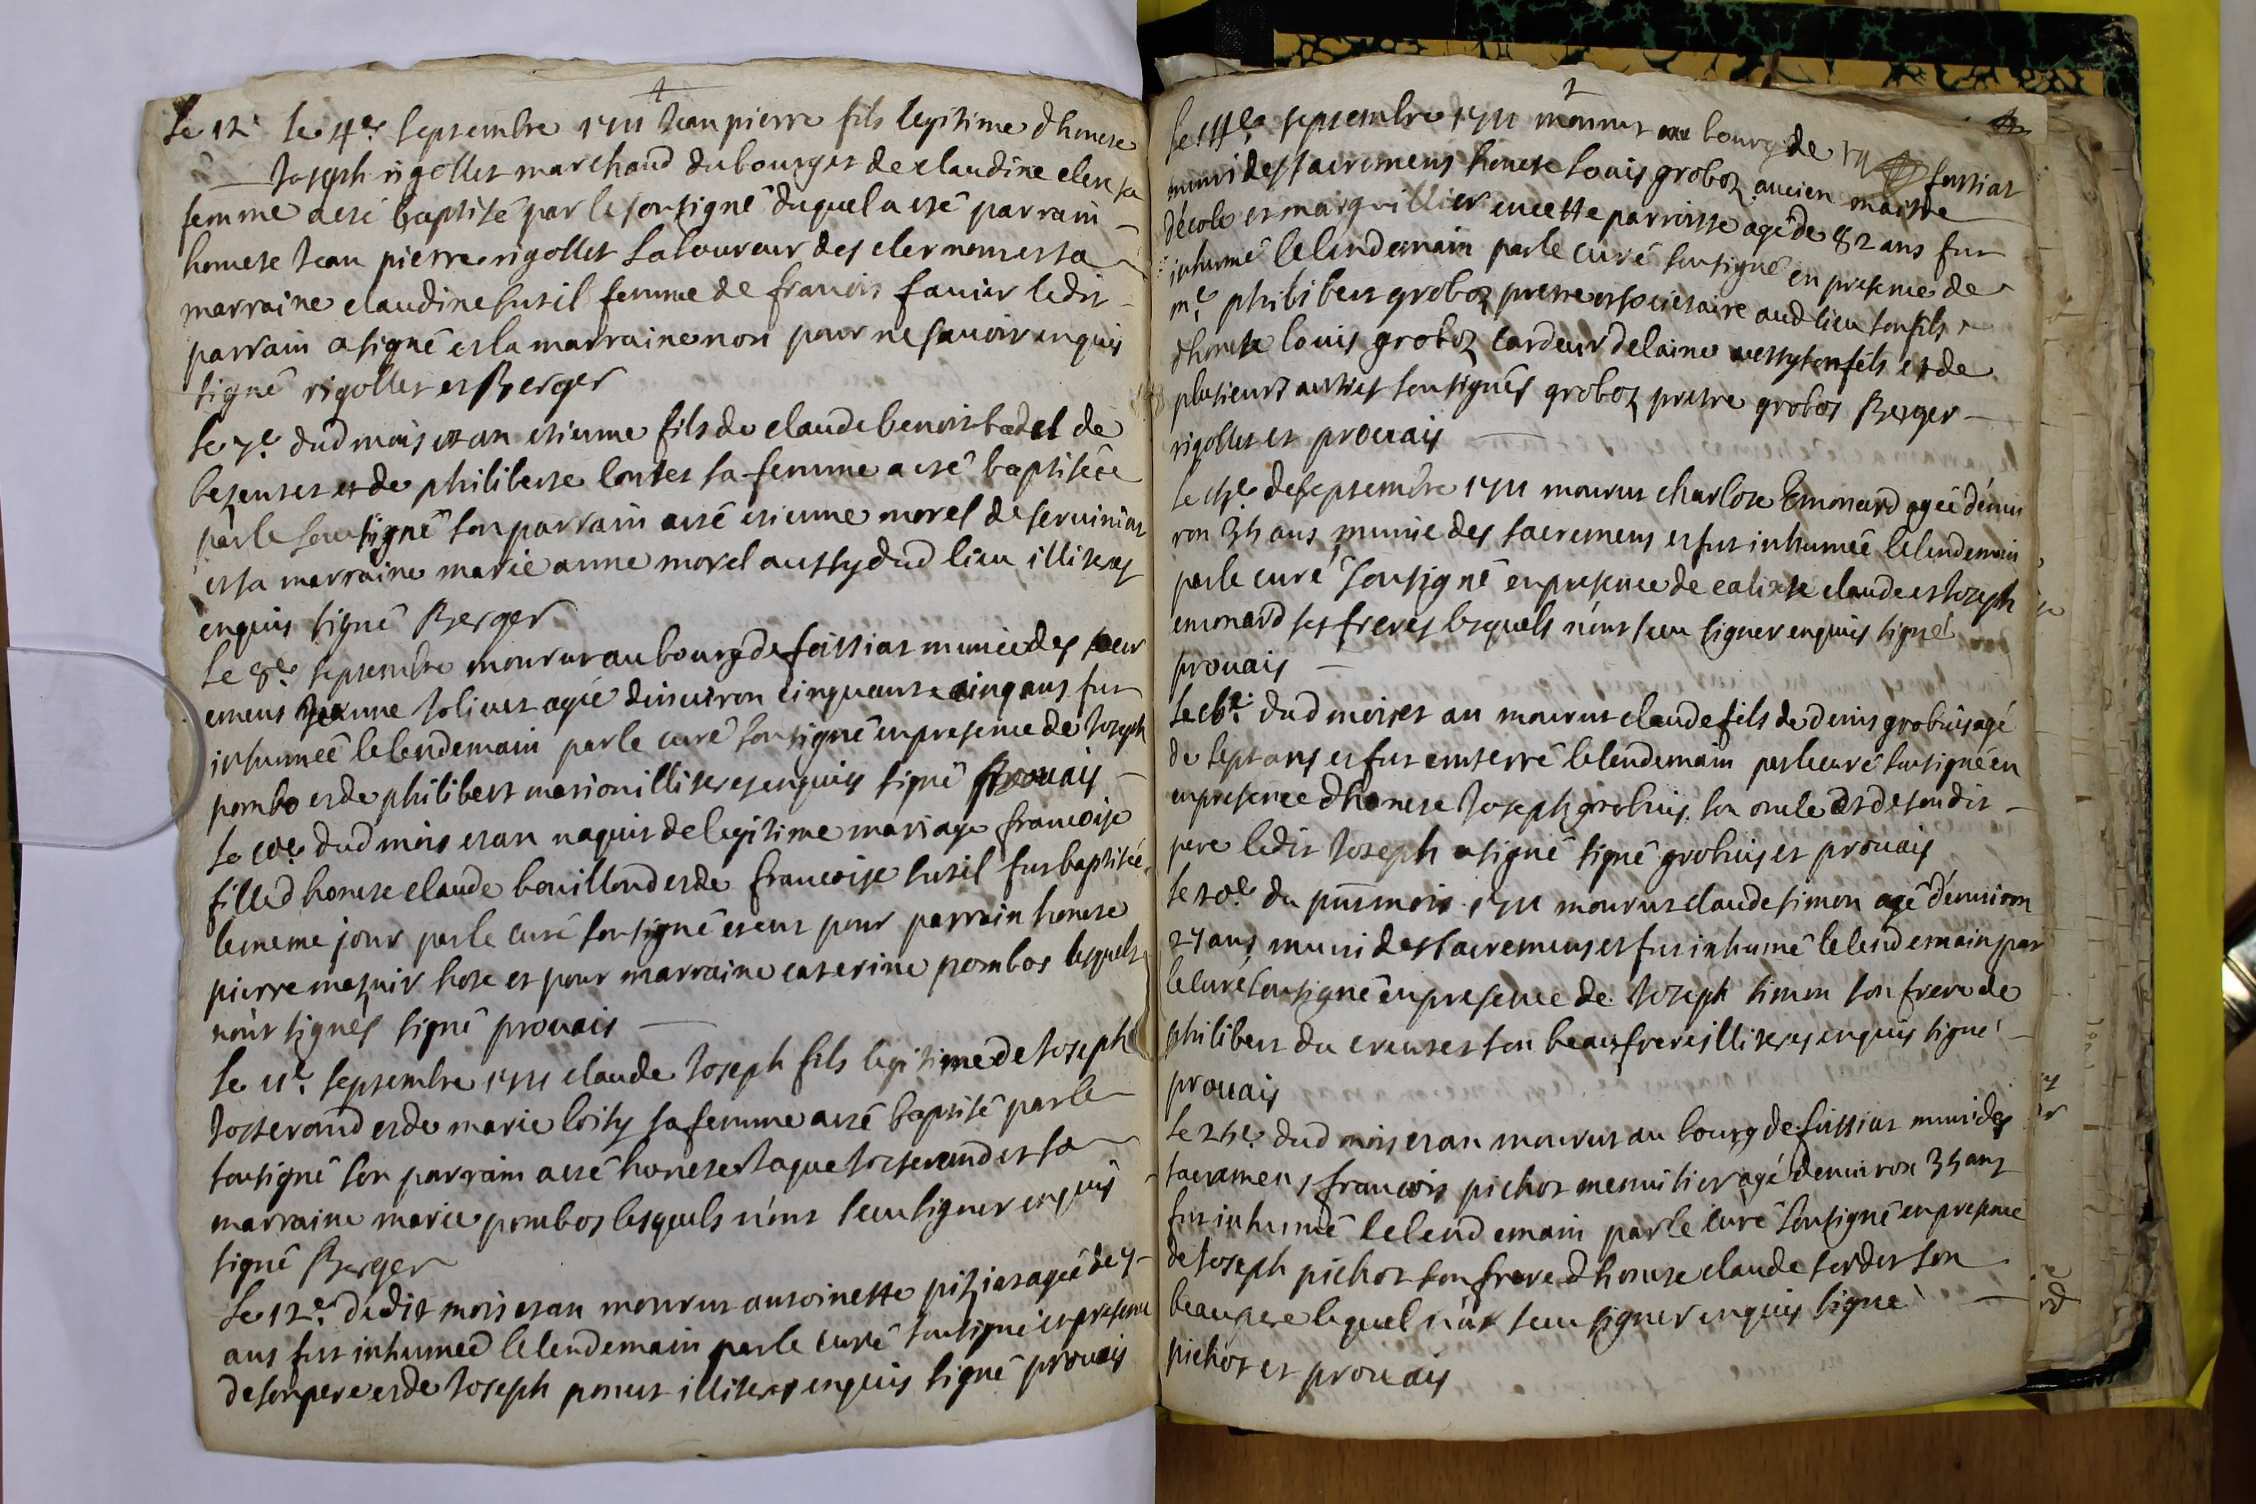 1
Le 12e Le 4e septembre 1711 Jean pierre fils legitime d'honete
Joseph rigollet marchand du bourg et de claudine clere sa
femme a esté baptisé par le sousigné duquel a esté parrain
honnete Jean pierre rigollet laboureur des et sa
marraine claudine sutil femme de francois favier ledit
parrain a signé et la marraine non pour ne savoir enquis
signé rigollet et Berger
Le 7e dud mois et an etienne fils de claude benoist badel de
bezentet et de philiberte lontet sa femme a esté baptiséé
par le sousigné son parrain a esté etienne morel de servinias
et sa marraine marie anne morel aussy dud lieu illiteres
enquis signé Berger
Le 8e septembre mourut au bourg de fissiat munie des sacr
emens Jeanne Jolivet agée d'environ cinquante cinq ans fut
inhumée le lendemain par le curé sousigné en presence de Joseph
pombo et de philibert marion illiteres enquis signé provais
Le 10e dud mois et an naquit de legitime mariage francoise
fille d'honete claude bouillond et de francoise sutil fut baptisée
le meme jour par le curé sousigné et eut pour parrain honete
pierre meznir hote et pour marraine caterine pombos lesquels
n'ont signés signé provais
Le 11e septembre 1711 claude Joseph fils legitime de Joseph
Josserand et de marie loisy sa femme a esté baptisé par le
sousigné son parrain a esté honete Jaque Josserand et sa
marraine marie pombos lesquels n'ont seu signer enquis
signé Berger
Le 12e dudit mois et an mourut antoinette piziat agée de 7
ans fut inhumée le lendemain par le curé sousigné en presence
de son pere et de Joseph poncet illiteres enquis signé provais
2
Le 14e septembre 1711 mourut au bourg de fissiat
muni des sacremens honete Louis groboz ancien maitre
d'école et marguillier en cette parroisse agé de 82 ans fut
inhumé le lendemain par le curé sousigné en presence de
mre philibert groboz pretre et societaire aud lieu son fils
d'honete louis groboz cardeur de laine aussy son fils et de
plusieurs autres sousignés groboz pretre groboz Berger
rigollet et provais
Le 15e de septembre 1711 mourut charlote Emonard agée d'envi
ron 34 ans munie des sacremens et fut inhumée le lendemain
par le curé sousigné en presence de calixte claude et Joseph
emonard ses freres lesquels n'ont seu signer enquis signé
provais
Le 16e dud mois et an mourut claude fils de denis grobuis agé
de sept ans et fut enterré le lendemain par le curé sousigné en
en presence d'honete Joseph grobuis son oncle et de sondit
pere ledit Joseph a signé signé grobuis et provais
Le 20e du pnt mois 1711 mourut claude simon agé d'environ
27 ans muni des sacremens et fut inhumé le lendemain par
le curé sousigné en presence de Joseph simon son frere de
philibert du creuset son beau frere illiteres enquis signé
provais
Le 24e dud mois et an mourut au bourg de fissiat muni des
sacramens francois pichot menuisier agé d'environ 35 ans
fut inhumé le lendemain par le curé sousigné en presence
de Joseph pichot son frere d'honete claude son
beau pere lequel n'at seu signer enquis signé
pichot et provais